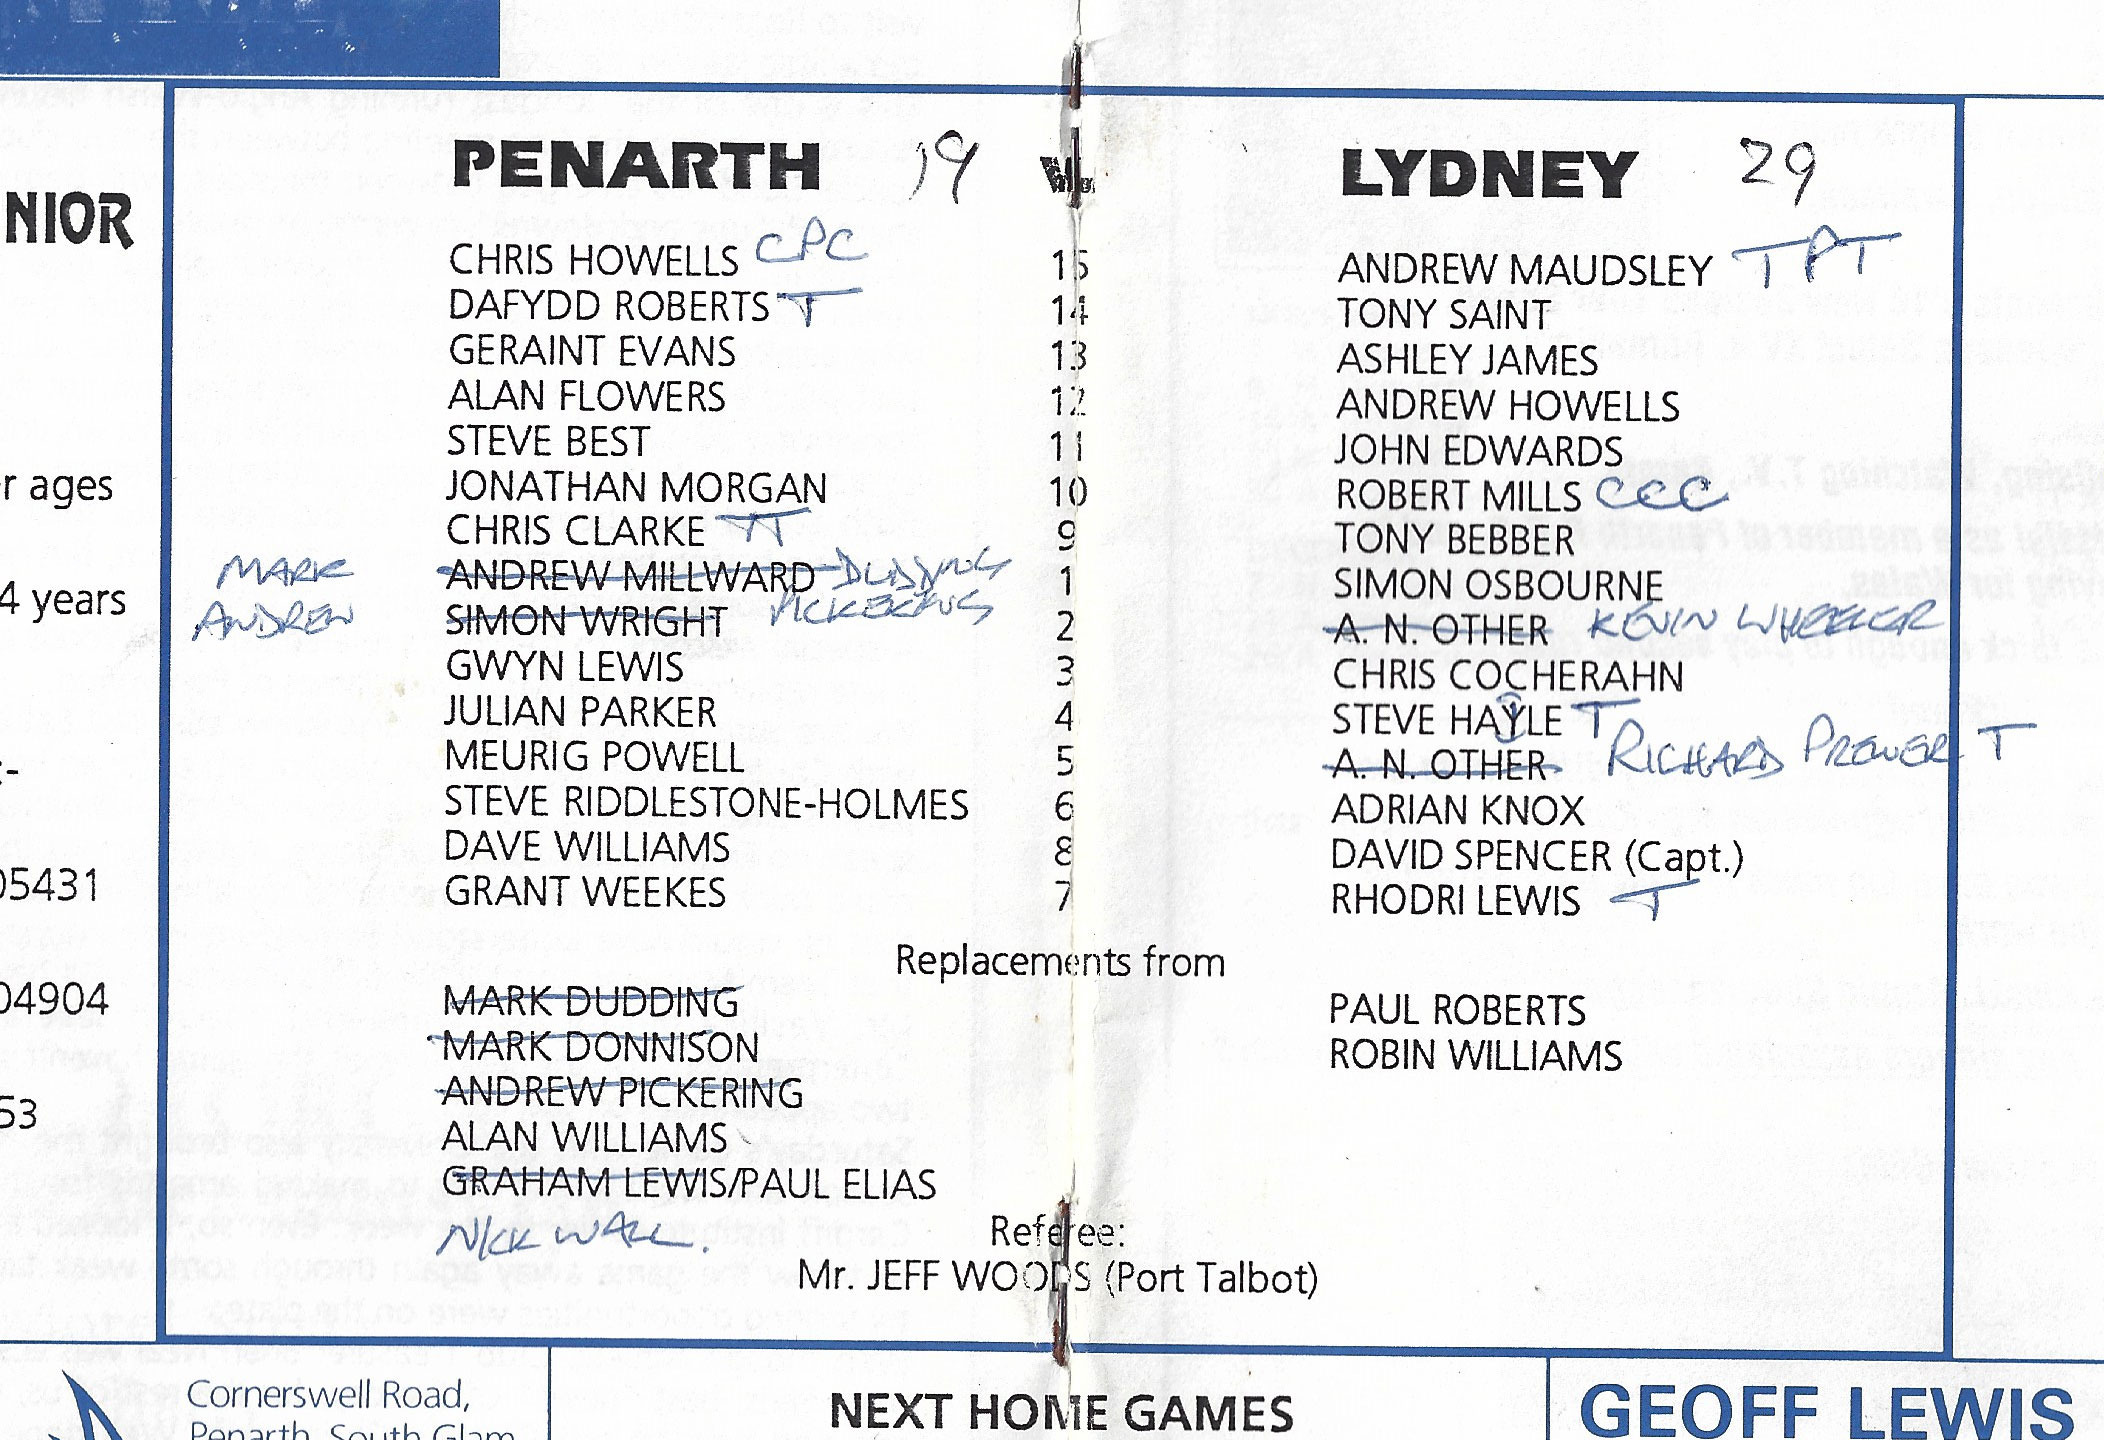 PENARTH 19 V. LYDNEY 29
NIOR
CHRIS HOWELLS CPC 15 ANDREW MAUDSLEY TPT
DAFYDD ROBERTS T 14 TONY SAINT
GERAINT EVANS 13 ASHLEY JAMES
ALAN FLOWERS 12 ANDREW HOWELLS
STEVE BEST 11 JOHN EDWARDS
r ages
JONATHAN MORGAN 10 ROBERT MILLS CCC
CHRIS CLARKE TT 9 TONY BEBBER
MARK ANDREW MILLWARD DUDDING 1 SIMON OSBOURNE
4 years
ANDREW SIMON WRIGHT PICKERING 2 A. N. OTHER KEVIN WHEELER
GWYN LEWIS 3 CHRIS COCHERAHN
JULIAN PARKER 4 STEVE HAYLE T
MEURIG POWELL 5 A. N. OTHER RICHARD PREWER T
:-
STEVE RIDDLESTONE-HOLMES 6 ADRIAN KNOX
DAVE WILLIAMS 8 DAVID SPENCER (Capt.)
05431
GRANT WEEKES 7 RHODRI LEWIS T
Replacements from
04904
MARK DUDDING PAUL ROBERTS
MARK DONNISON ROBIN WILLIAMS
ANDREW PICKERING
53
ALAN WILLIAMS
GRAHAM LEWIS/PAUL ELIAS
NICK WALL.
Referee:
Mr. JEFF WOODS (Port Talbot)
Cornerswell Road,
Penarth, South Glam
NEXT HOME GAMES
GEOFF LEWIS